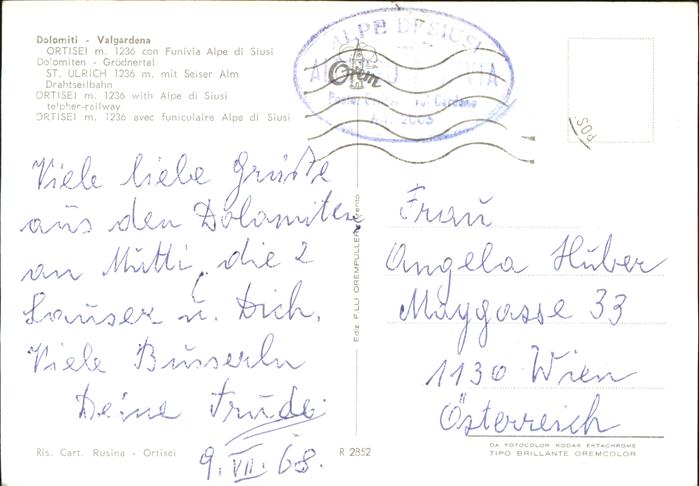 Dolomiti - Valgardena
ORTISEI m. 1236 con Funivia Alpe di Siusi
Dolomiten - Grödnertal
ST. ULRICH 1236 m. mit Seiser Alm
Drahtseilbahn
ORTISEI m. 1236 with Alpe di Siusi
telpher-railway
ORTISEI m. 1236 avec funiculaire Alpe di Siusi
ALPE DI SIUSI
Orem
2005
POS.
Viele liebe Grüsse
aus den Dolomiten
an Mutti, die 2
Lauser u. Dich.
Viele Busserln
Deine Trude
9. VII. 68.
Ediz. F.LLI OREMPULLER Trento
Frau
Angela Huber
Maygasse 33
1130 Wien
Österreich
Ris. Cart. Rusina - Ortisei
R 2852
DA FOTOCOLOR KODAK EKTACHROME
TIPO BRILLANTE OREMCOLOR